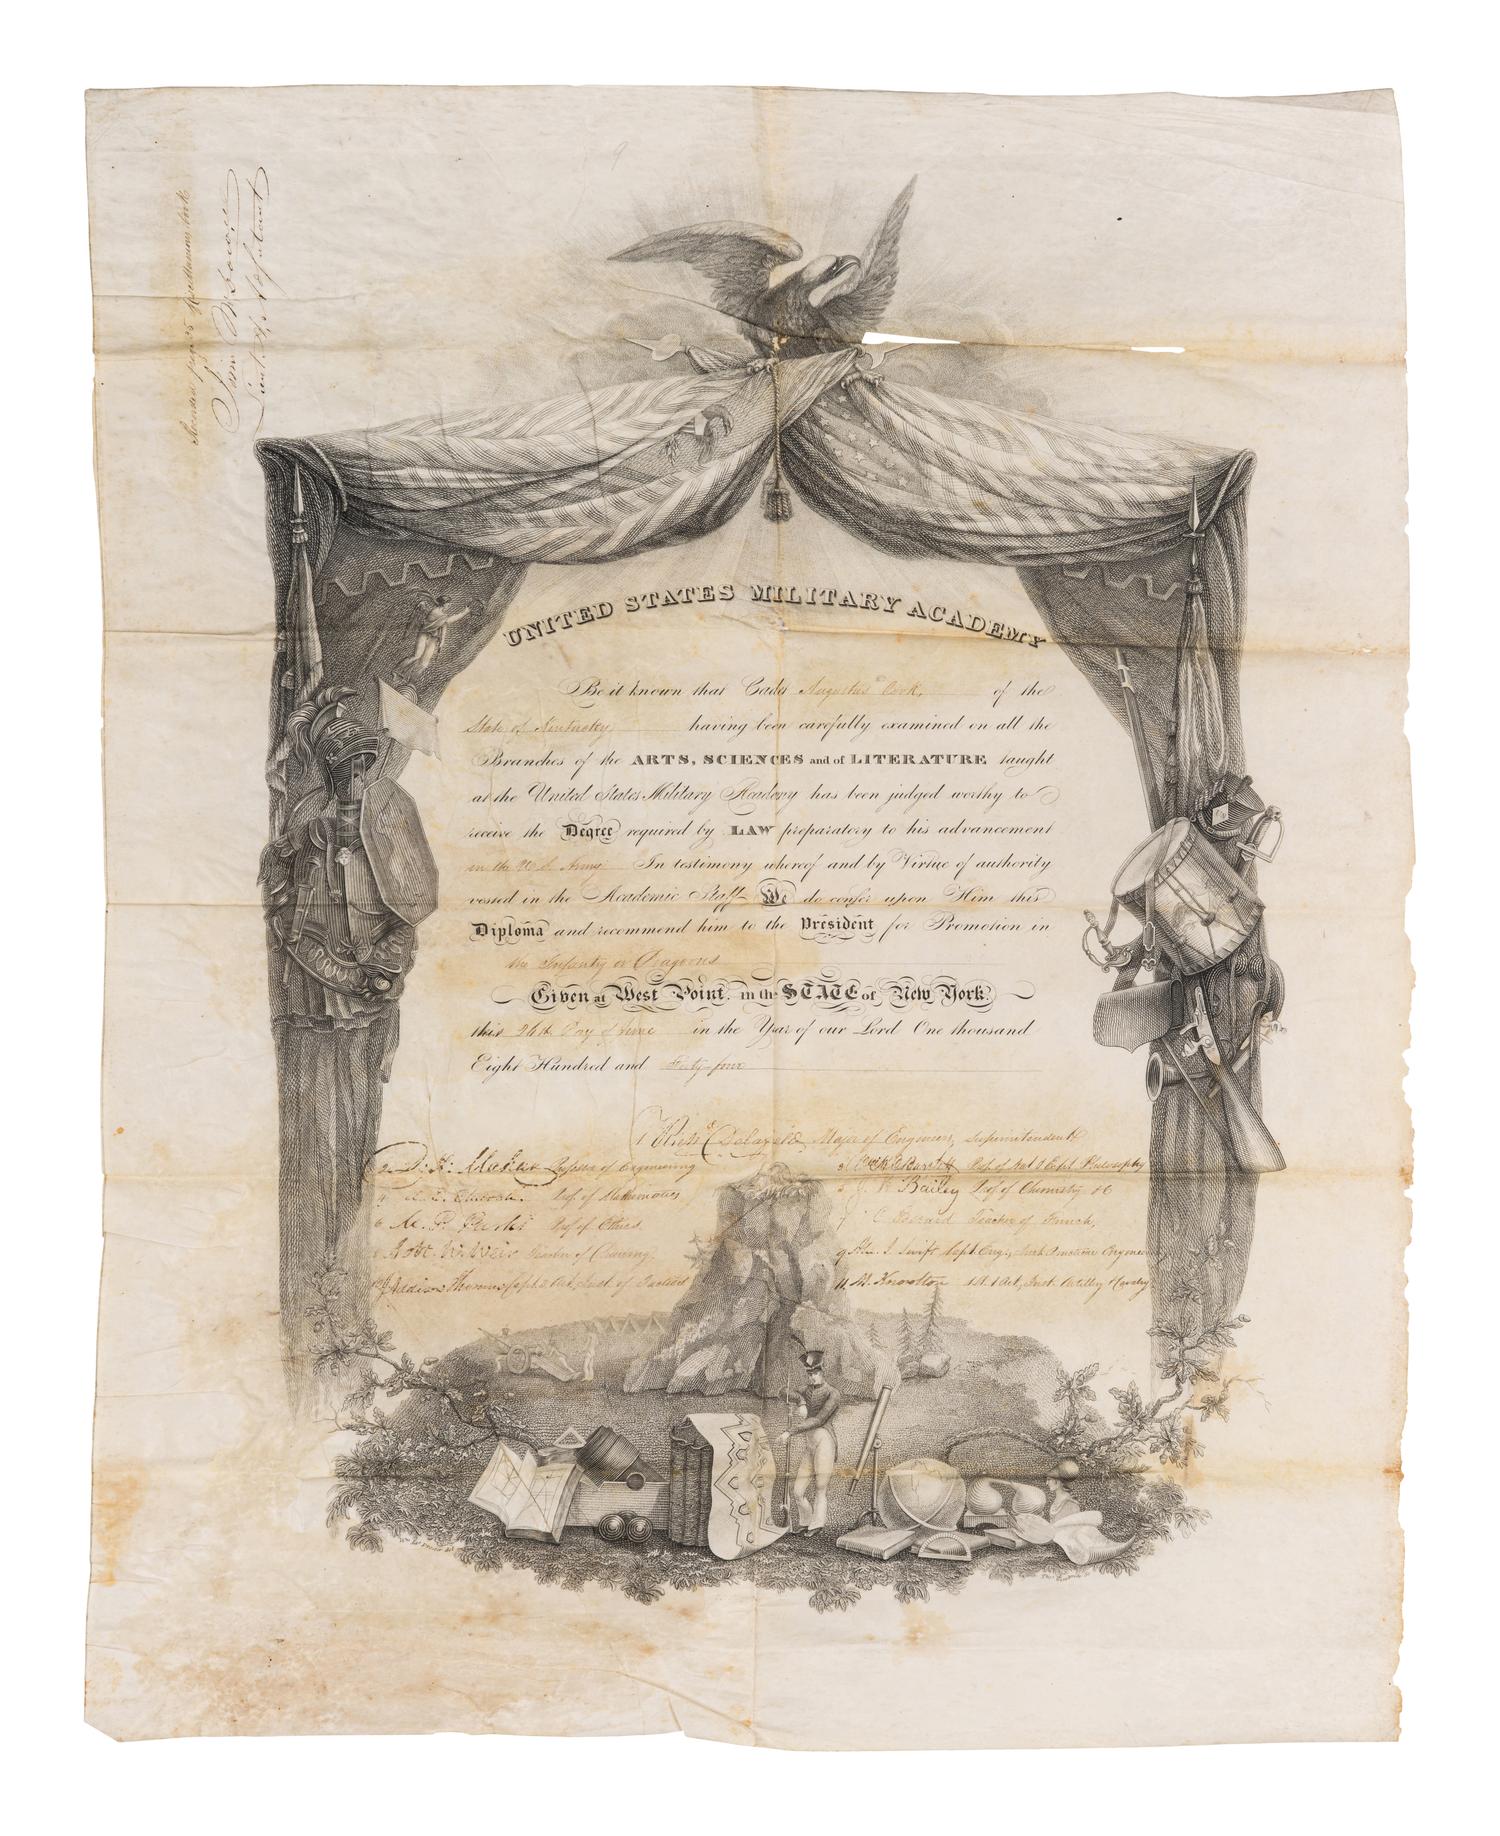 UNITED STATES MILITARY ACADEMY
Be it known that Cadet Augustus Cook, of the
State of Kentucky having been carefully examined on all the
Branches of the ARTS, SCIENCES and of LITERATURE taught
at the United States Military Academy has been judged worthy to
receive the Degree required by LAW preparatory to his advancement
in the U.S. Army In testimony whereof and by Virtue of authority
vested in the Academic Staff We do confer upon Him this
Diploma and recommend him to the President for Promotion in
the Infantry or Dragoons
Given at West Point. in the STATE of New York.
this 26th Day of June in the Year of our Lord One thousand
Eight Hundred and Forty four
1 Richd Delafield, Major of Engineers, Superintendent
2 D. H. Mahan Professor of Engineering
3 Bartlett Prof. of Nat & Expl. Philosophy
4 Prof. of Mathematics
5 J. W. Bailey Prof. of Chemistry &c
6 M. P. Parks Prof of Ethics
7 C Berard Teacher of French,
8 Robt. W. Weir Teacher of Drawing.
9 Alex. J. Swift Capt. Engs.,
10 J Addison Thomas Capt. 3 Art, Inst. of Tactics
11 M. Knowlton 1 Lt. 1 Art, Inst. Artillery & Cavalry
Lieut. & Adjutant